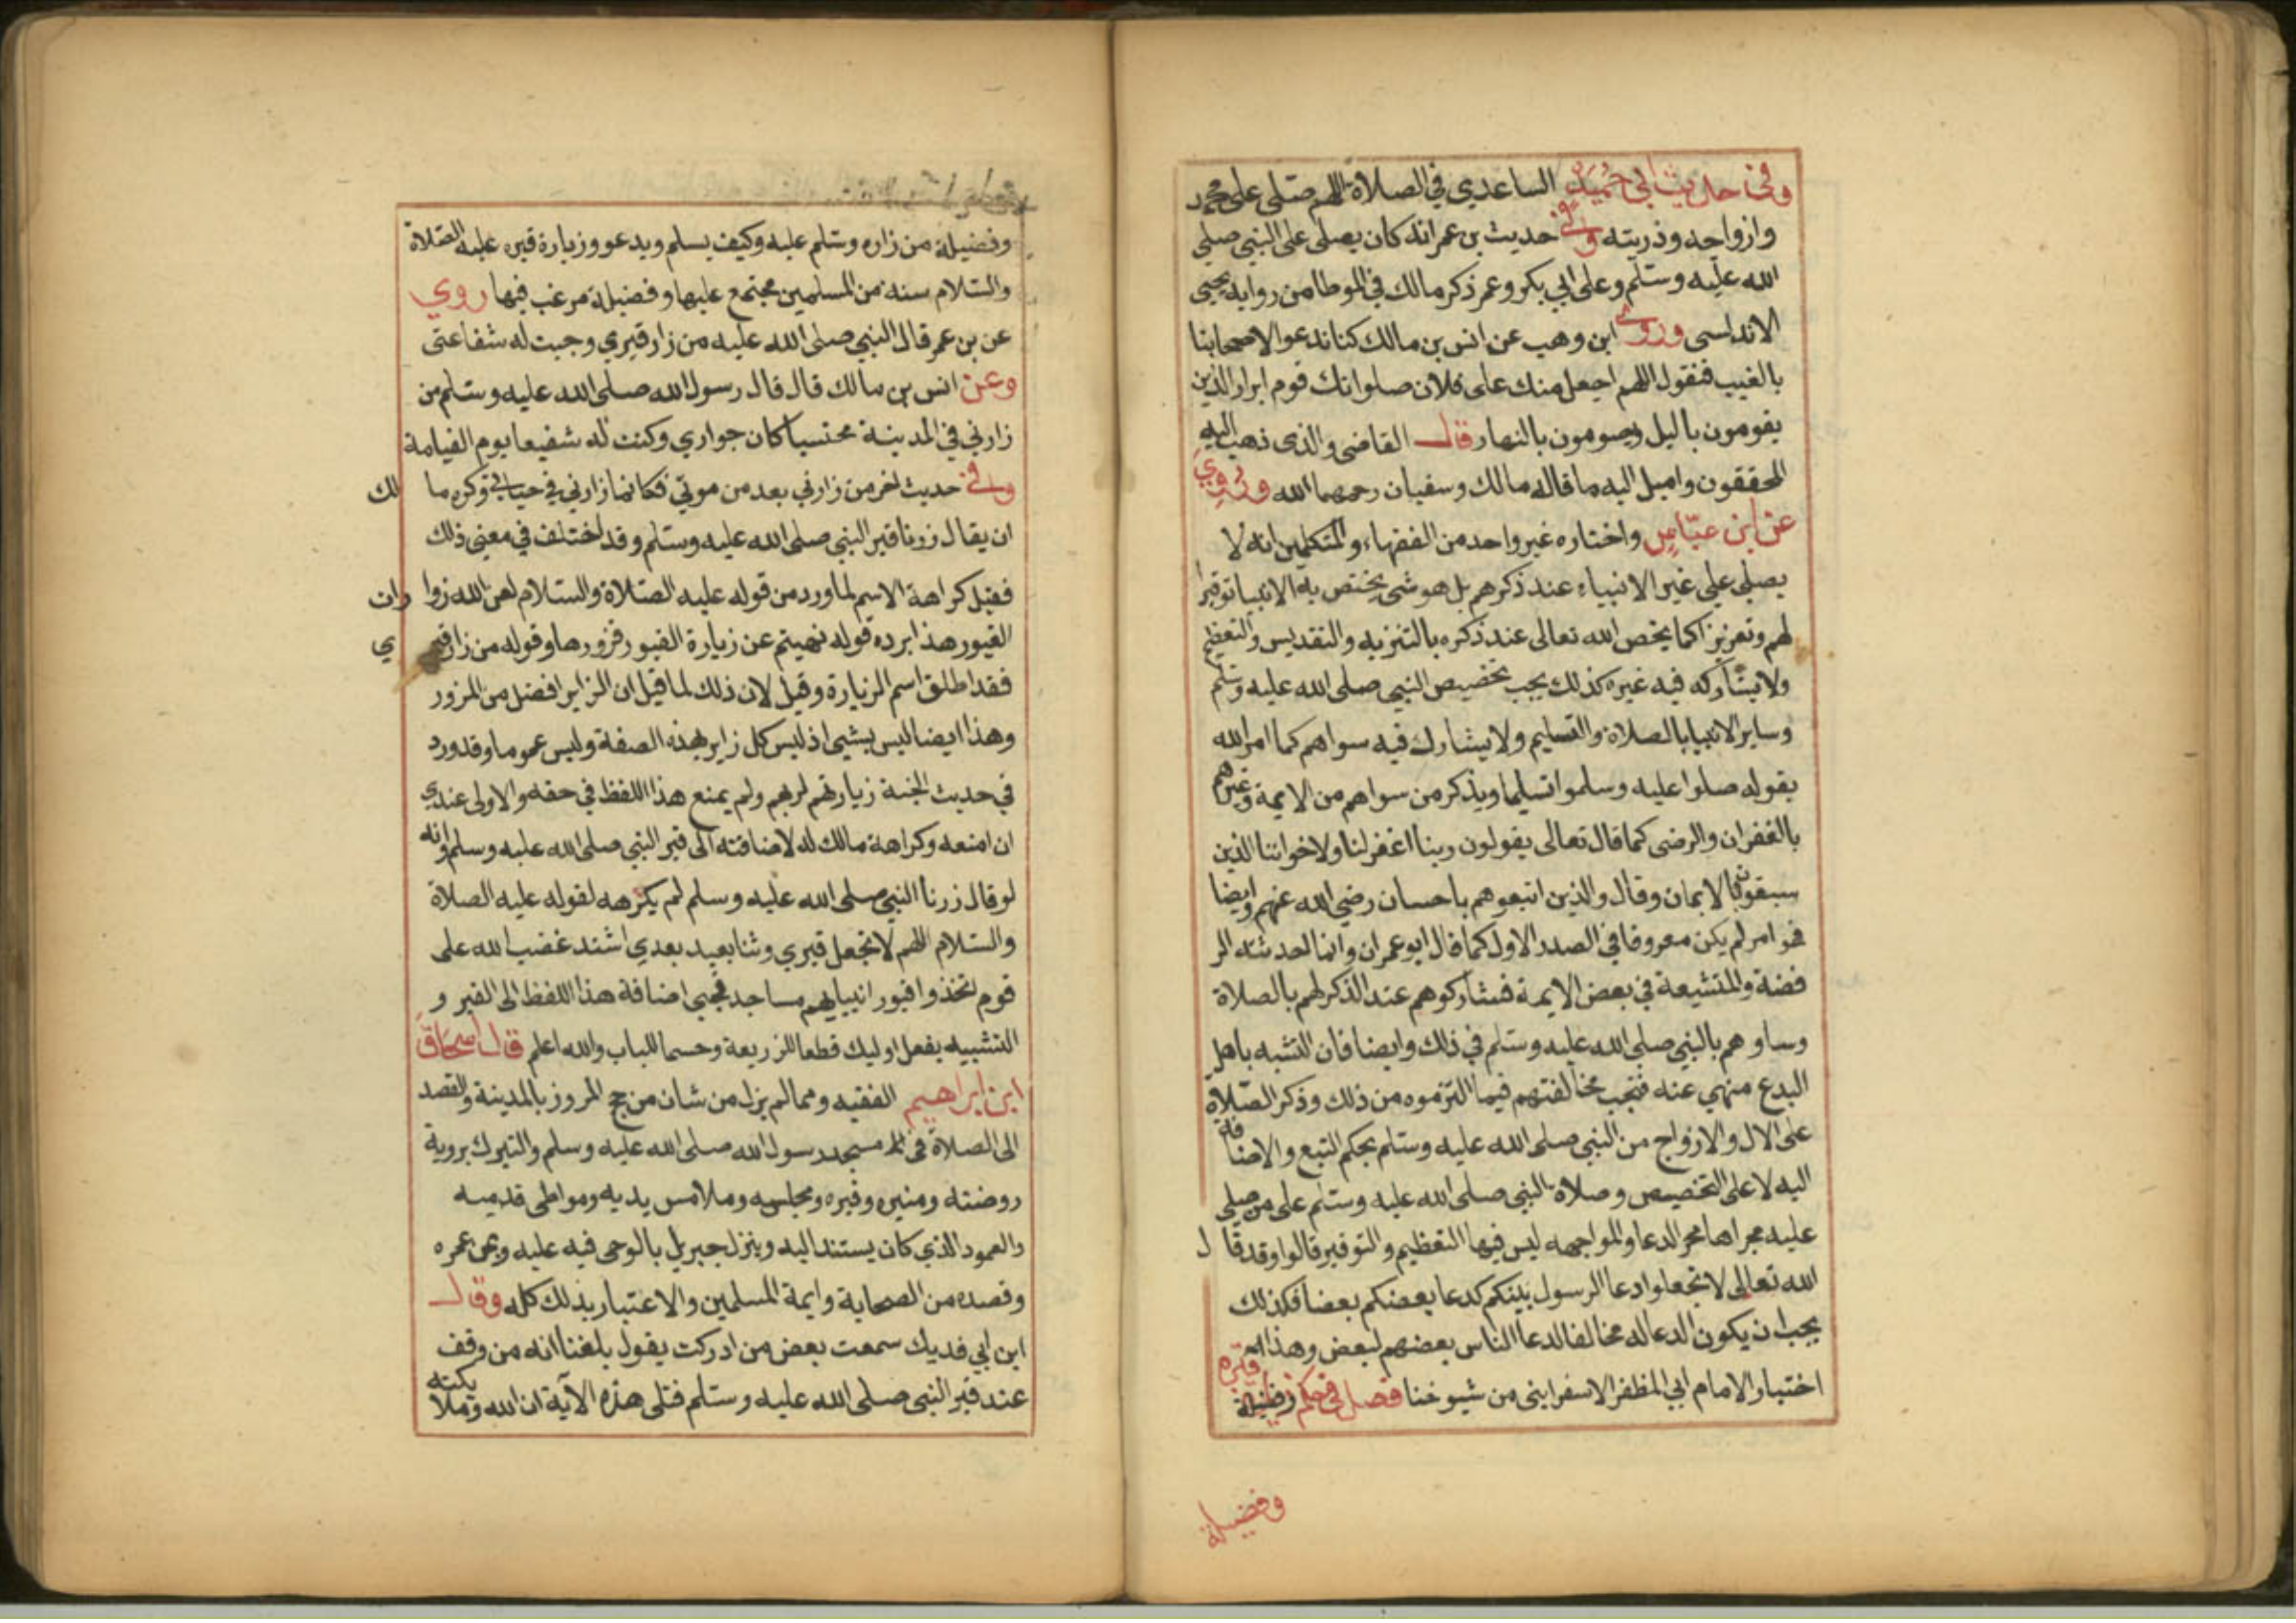 وفي حديث ابي حميد الساعدي في الصلاة اللهم صلى على محمد
وازواجه وذريته وفي حديث بن عمر انه كان يصلى على النبي صلى
الله عليه وسلم وعلى ابي بكر وعمر ذكر مالك في الموطا من رواية يحيى
الاندلسى وروى ابن وهب عن انس بن مالك كنا ندعو لاصحابنا
بالغيب فنقول اللهم اجعل منك على فلان صلوات قوم ابرار الذين
يقومون باليل ويصومون بالنهار قال القاضى والذى ذهب اليه
المحققون واميل اليه ما قاله مالك وسفيان رحمهما الله وروي
عن ابن عباس واختاره غير واحد من الفقهاء والمتكلمين انه لا
يصلى على غير الانبياء عند ذكرهم بل هو شى يختص به الانبيا توقيرا
لهم وتعزيزا كما يخص الله تعالى عند ذكره بالتنزيه والتقديس والتعظيم
ولا يشاركه فيه غيره كذلك يجب تخصيص النبي صلى الله عليه وسلم
وساير الانبيا بالصلاة والتسليم ولا يشارك فيه سواهم كما امر الله
بقوله صلوا عليه وسلموا تسليما ويذكر من سواهم من الايمة وغيرهم
بالغفران والرضى كما قال تعالى يقولون ربنا اغفر لنا ولاخواننا الذين
سبقونا بالايمان وقال والذين اتبعوهم باحسان رضي الله عنهم وايضا
فهو امر لم يكن معروفا في الصدر الاول كما قال ابو عمران وانما احدثته الر
فضة والمتشيعة في بعض الايمة فشاركوهم عند الذكر لهم بالصلاة
وساوهم بالنبي صلى الله عليه وسلم في ذلك وايضا فان التشبه باهل
البدع منهي عنه فتجب مخالفتهم فيما التزموه من ذلك وذكر الصلاة
على الال والازواج من النبي صلى الله عليه وسلم بحكم التبع والاضافة
اليه لا على التخصيص وصلاة النبي صلى الله عليه وسلم على من صلى
عليه مجراها مجر الدعا والمواجهه ليس فيها التعظيم والتوقير قالوا وقد قال
الله تعالى لا تجعلوا دعا الرسول بينكم كدعا بعضكم بعضا فكذلك
يجب ان يكون الدعا له مخالفا لدعا الناس بعضهم لبعض وهذا
اختيار الامام ابي المظفر الاسفرايني من شيوخنا فصل في حكم زيارة قبره وفضيلة
وفضيلة
وفضيلة من زاره وسلم عليه وكيف يسلم ويدعو وزيارة قبره عليه الصلاة
والسلام سنة من المسلمين مجتمع عليها وفضيلة مرغب فيها روي
عن بن عمر قال النبي صلى الله عليه من زار قبري وجبت له شفاعتى
وعن انس بن مالك قال قال رسول الله صلى الله عليه وسلم من
زارني في المدينة محتسبا كان جواري وكنت له شفيعا يوم القيامة
وفي حديث اخر من زارني بعد من موتي فكانما زارني في حياتي وكره مالك
ان يقال زرنا قبر النبي صلى الله عليه وسلم وقد اختلف في معنى ذلك
فقيل كراهة الاسم لما ورد من قوله عليه الصلاة والسلام لعن الله زوارات
القبور هذا يرده قوله نهيتم عن زيارة القبور فزورها وقوله من زار قبري
فقد اطلق اسم الزيارة وقيل لان ذلك لما قيل ان الزاير افضل من المزور
وهذا ايضا ليس بشيى اذ ليس كل زاير بهذه الصفة وليس عموما وقد ورد
في حديث الجنة زيارتهم لربهم ولم يمنع هذا اللفظ في حقه والاولى عندي
ان امنعه وكراهة مالك له لاضافته الى قبر النبي صلى الله عليه وسلم وانه
لو قال زرنا النبي صلى الله عليه وسلم لم يكرهه لقوله عليه الصلاة
والسلام اللهم لا تجعل قبري وثنا يعبد بعدي اشتد غضب الله على
قوم اتخذوا قبور انبيايهم مساجد فحمى اضافة هذا اللفظ الى القبر و
التشبيه بفعل اوليك قطعا للذريعة وحسما للباب والله اعلم قال اسحاق
ابن ابراهيم الفقيه ومما لم يزل من شان من حج المروز بالمدينة والقصد
الى الصلاة في مسجد رسول الله صلى الله عليه وسلم والتبرك بروية
روضته ومنبره وقبره ومجلسه وملامس يديه ومواطى قدميه
والعمود الذي كان يستند اليه وينزل جبريل بالوحى فيه عليه وبمن عمره
وقصده من الصحابة وايمة المسلمين والاعتبار بذلك كله وقال
ابن ابي فديك سمعت بعض من ادركت يقول بلغنا انه من وقف
عند قبر النبي صلى الله عليه وسلم فتلى هذه الآية ان الله وملائكته